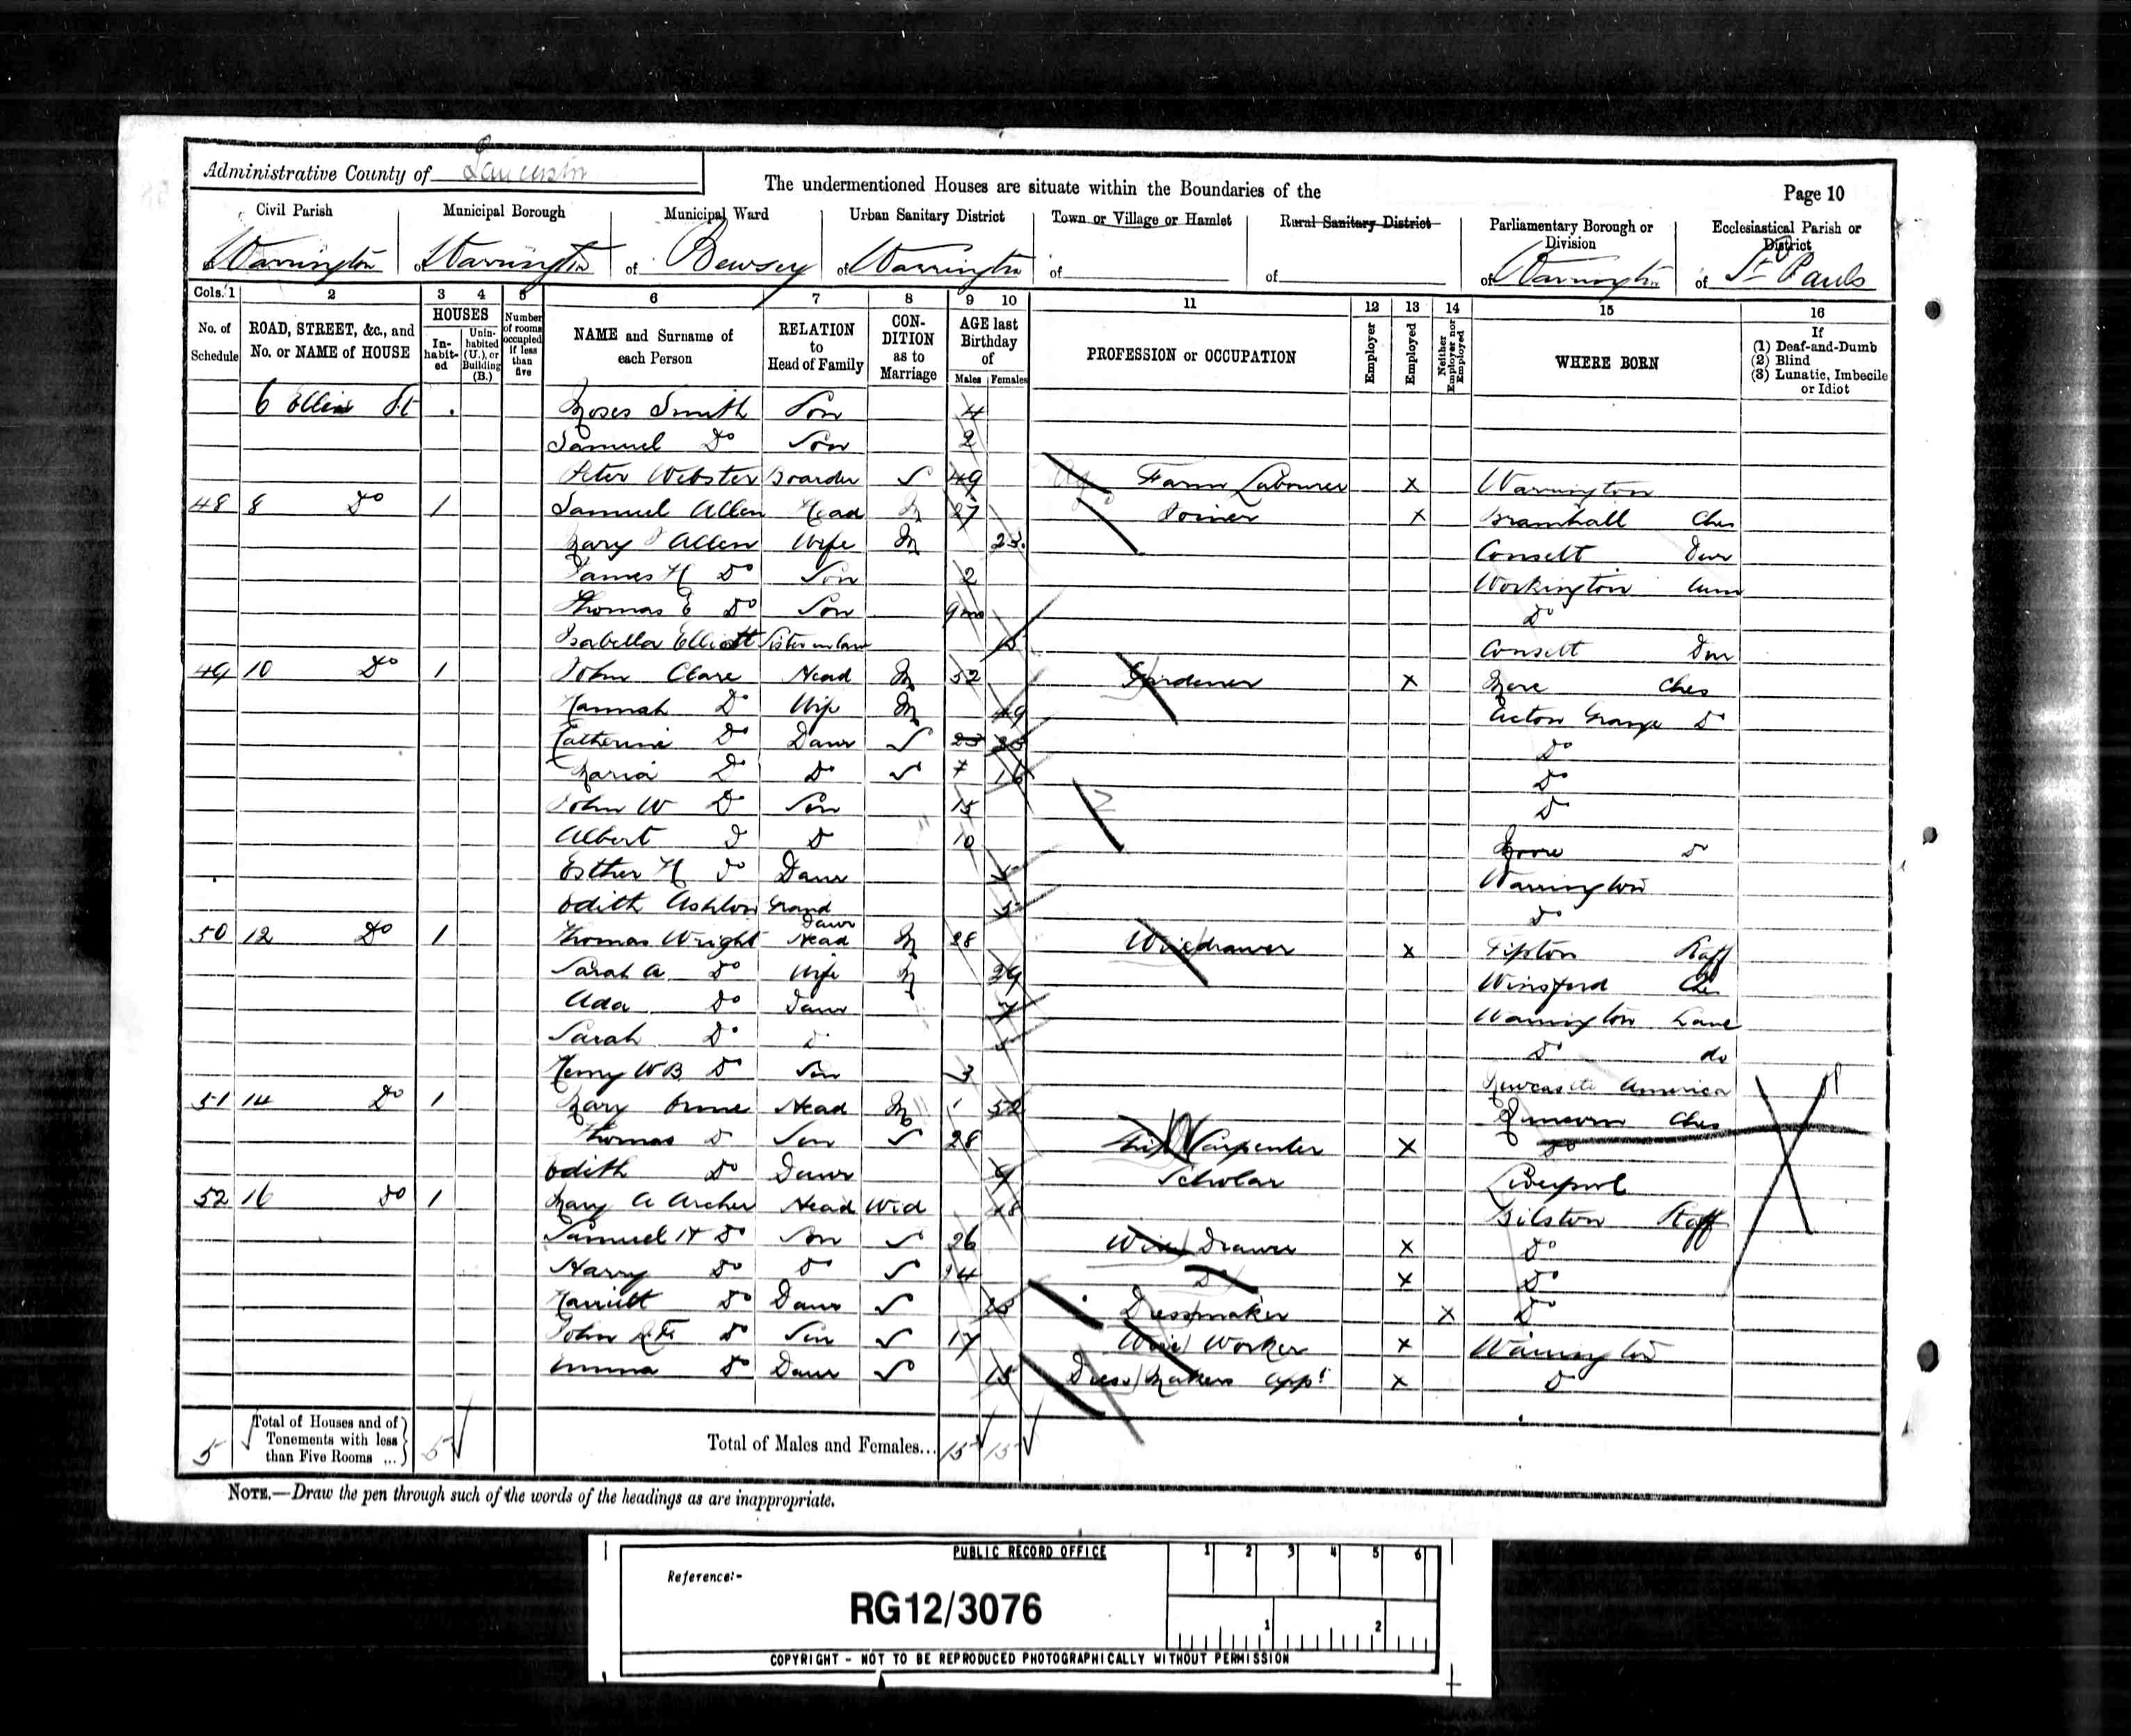 Administrative County of Lancaster
The undermentioned Houses are situate within the Boundaries of the
Page 10
Civil Parish Municipal Borough Municipal Ward Urban Sanitary District Town or Village or Hamlet Rural Sanitary District Parliamentary Borough or Division Ecclesiastical Parish or District
Warrington of Warrington of Bewsey of Warrington of of of Warrington of St Pauls
Cols. 1 2 3 4 5 6 7 8 9 10 11 12 13 14 15 16
No. of Schedule ROAD, STREET, &c., and No. or NAME of HOUSE HOUSES Inhabited Uninhabited (U.), or Building (B.) Number of rooms occupied if less than five NAME and Surname of each Person RELATION to Head of Family CONDITION as to Marriage AGE last Birthday of Males Females PROFESSION or OCCUPATION Employer Employed Neither Employer nor Employed WHERE BORN If (1) Deaf-and-Dumb (2) Blind (3) Lunatic, Imbecile or Idiot
6 Ellis St Moses Smith Son 4
Samuel Do Son 2
Peter Webster Boarder S 49 Farm Labourer X Warrington
48 8 Do 1 Samuel Allen Head M 27 Joiner X Bramhall Ches
Mary Allen Wife M 23 Consett Dur
James H Do Son 2 Workington Cum
Thomas E Do Son 9m Do
Isabella Elliott Sister in law Consett Dur
49 10 Do 1 John Clare Head M 52 Gardener X Mere Ches
Hannah Do Wife M 49 Acton Grange Do
Catherine Do Daur S 23 Do
Maria Do Do S 16 Do
John W Do Son 15 Do
Albert D D 10 Moore D
Esther H Do Daur 5 Warrington
Edith Ashton Grand Daur 5 Do
50 12 Do 1 Thomas Wright Head M 28 Wiredrawer X Tipton Staff
Sarah A Do Wife M 29 Winsford Ches
Ada Do Daur 7 Warrington Lanc
Sarah Do D 5 Do do
Henry W B Do Son 3 Newcastle America
51 14 Do 1 Mary Head M 52 Runcorn Ches
Thomas D Son S 28 Ship Carpenter X Do
Edith Do Daur 9 Scholar Liverpool
52 16 Do 1 Mary A Archer Head Wid 48 Bilston Staff
Samuel H Do Son S 26 Wire Drawer X Do
Harry Do D S Do X Do
Harriett Do Daur S Dressmaker X Do
John Do Son S 17 Wire Worker X Warrington
Emma Do Daur S 15 Dress Makers App X D
5 Total of Houses and of Tenements with less than Five Rooms ... 5 Total of Males and Females... 15 15
NOTE.—Draw the pen through such of the words of the headings as are inappropriate.
PUBLIC RECORD OFFICE 1 2 3 4 5 6
Reference:-
RG12/3076
1 2
COPYRIGHT - NOT TO BE REPRODUCED PHOTOGRAPHICALLY WITHOUT PERMISSION